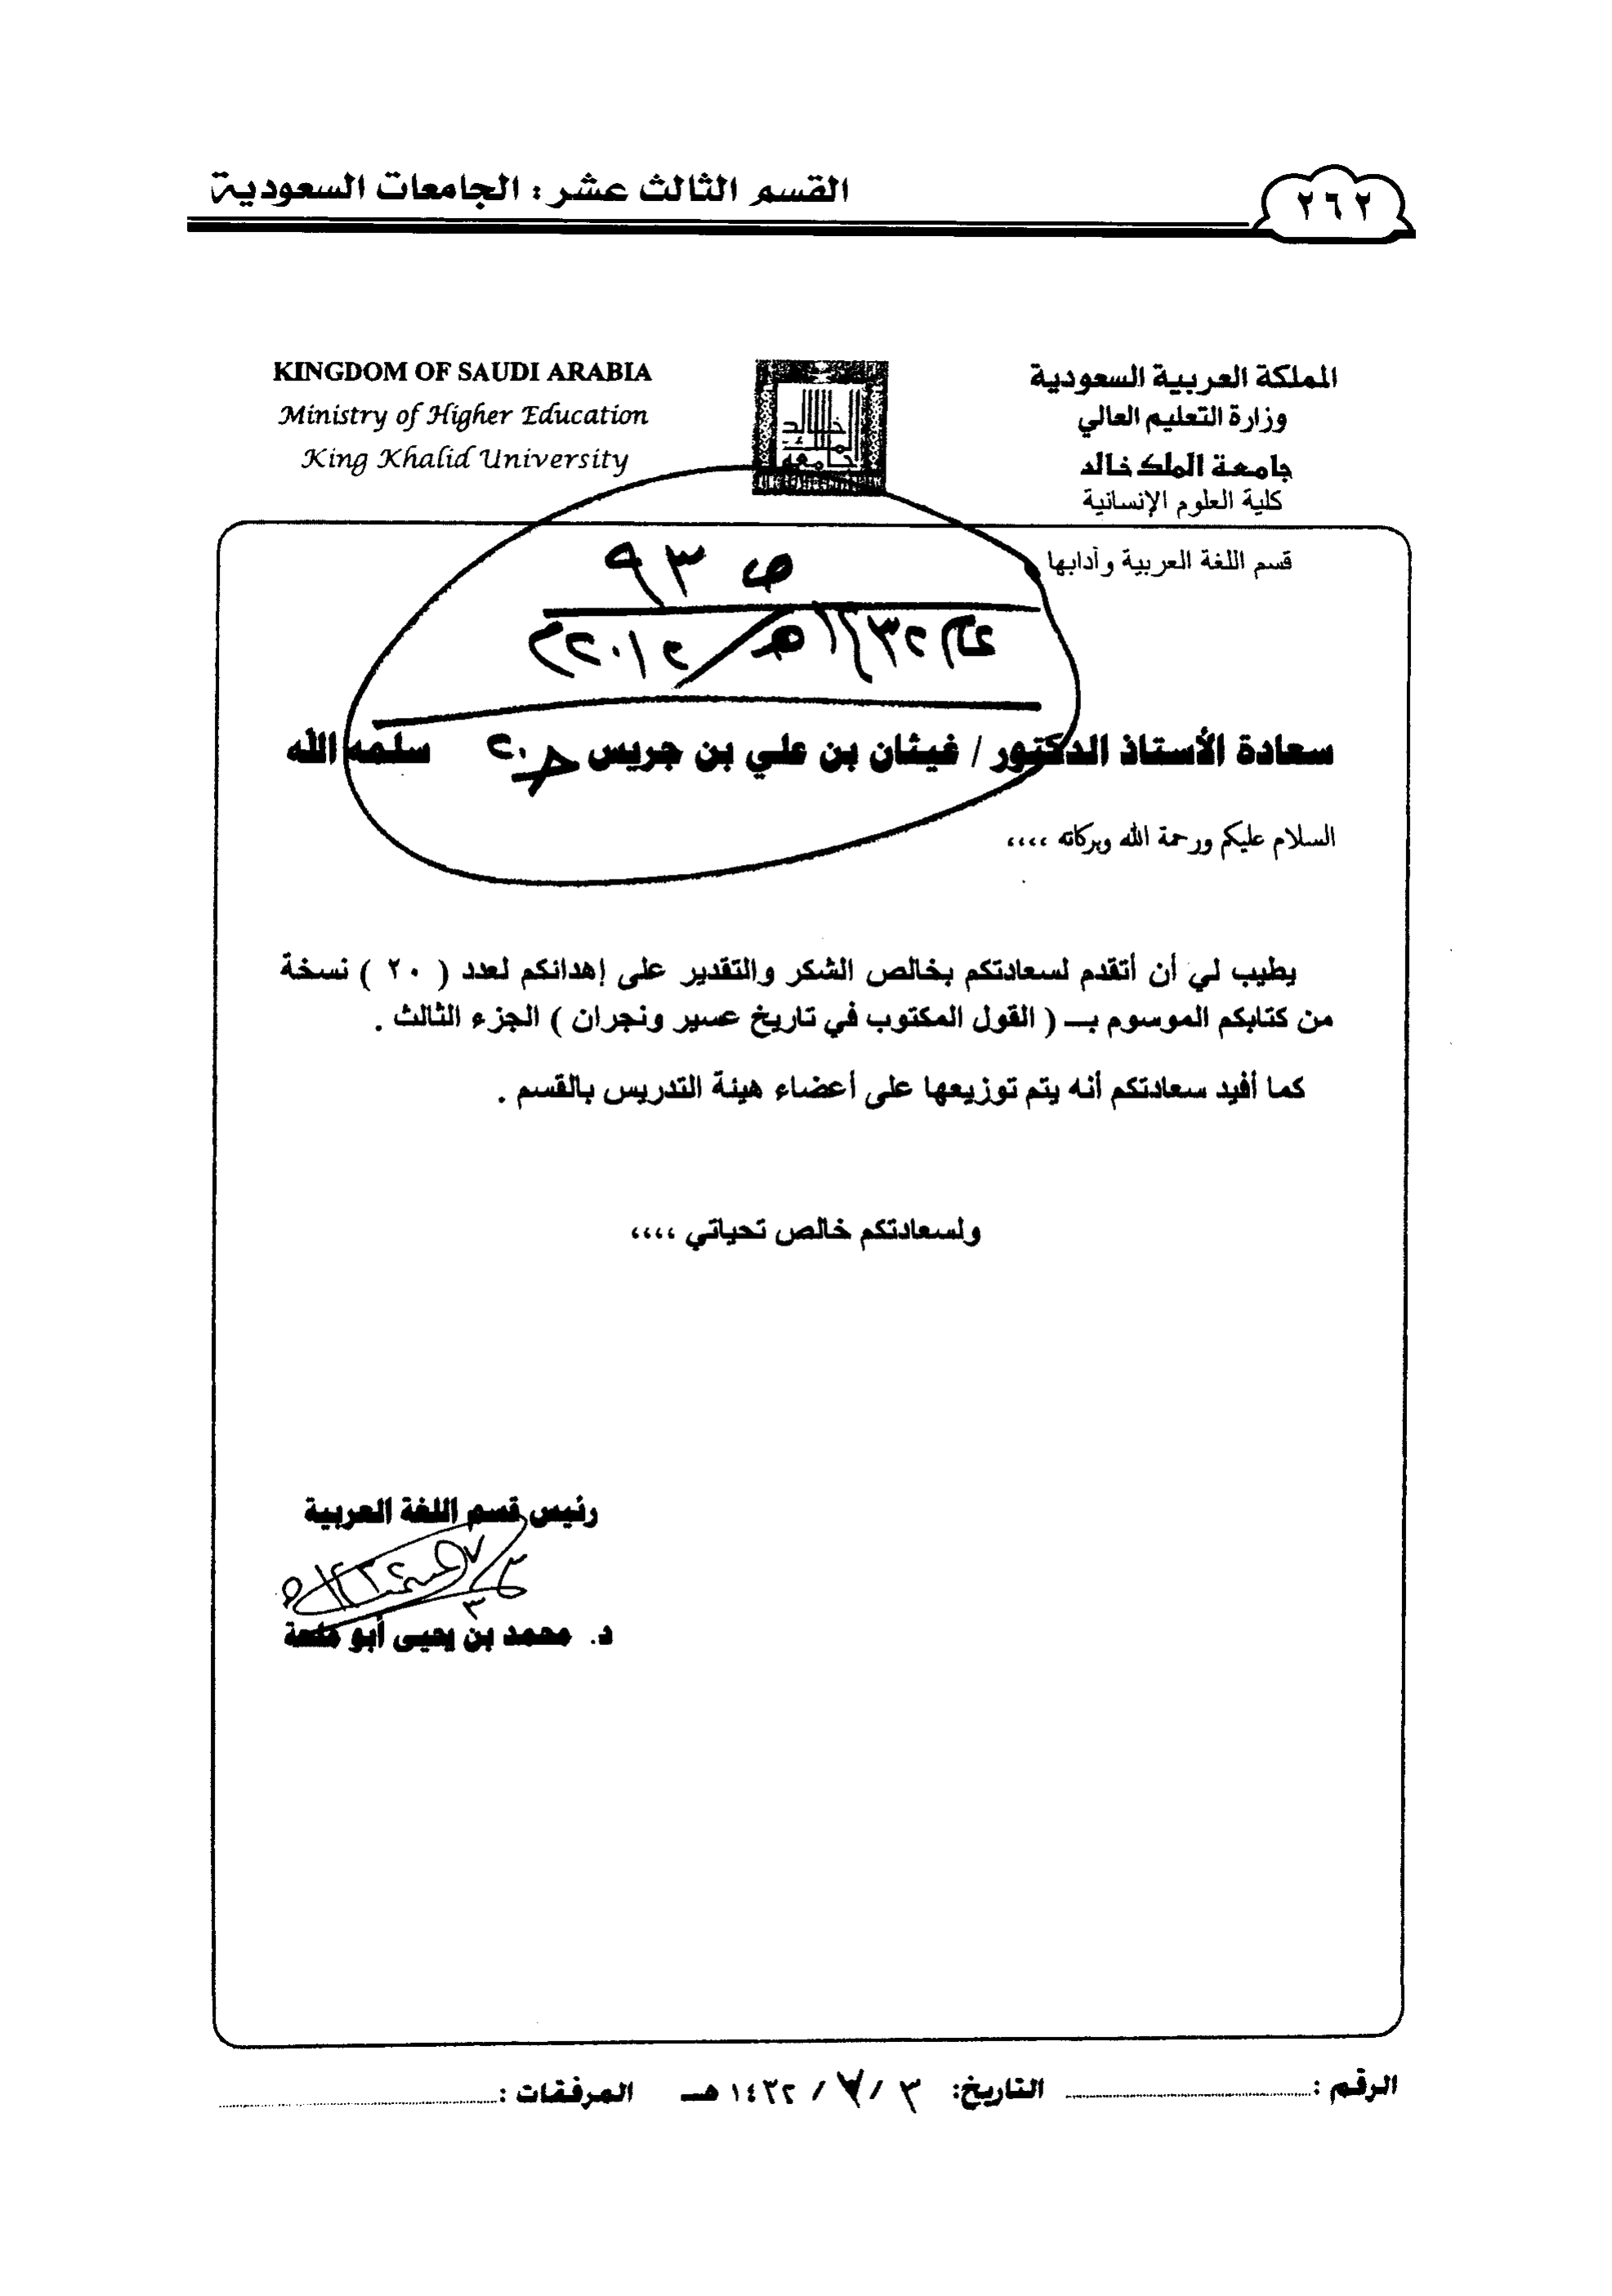 القسم الثالث عشر : الجامعات السعودية
٢٦٢
المملكة العربية السعودية
وزارة التعليم العالي
جامعة الملك خالد
كلية العلوم الإنسانية
قسم اللغة العربية وآدابها
KINGDOM OF SAUDI ARABIA
Ministry of Higher Education
King Khalid University
ص ٩٣
سعادة الأستاذ الدكتور / غيثان بن علي بن جريس سلمه الله
السلام عليكم ورحمة الله وبركاته ،،،،
يطيب لي أن أتقدم لسعادتكم بخالص الشكر والتقدير على إهدائكم لعدد ( ٢٠ ) نسخة
من كتابكم الموسوم بـ ( القول المكتوب في تاريخ عسير ونجران ) الجزء الثالث .
كما أفيد سعادتكم أنه يتم توزيعها على أعضاء هيئة التدريس بالقسم .
ولسعادتكم خالص تحياتي ،،،،
رئيس قسم اللغة العربية
د. محمد بن يحيى أبو ملحة
الرقم : التاريخ: ٣ / ٧ / ١٤٣٢ هـ المرفقات :